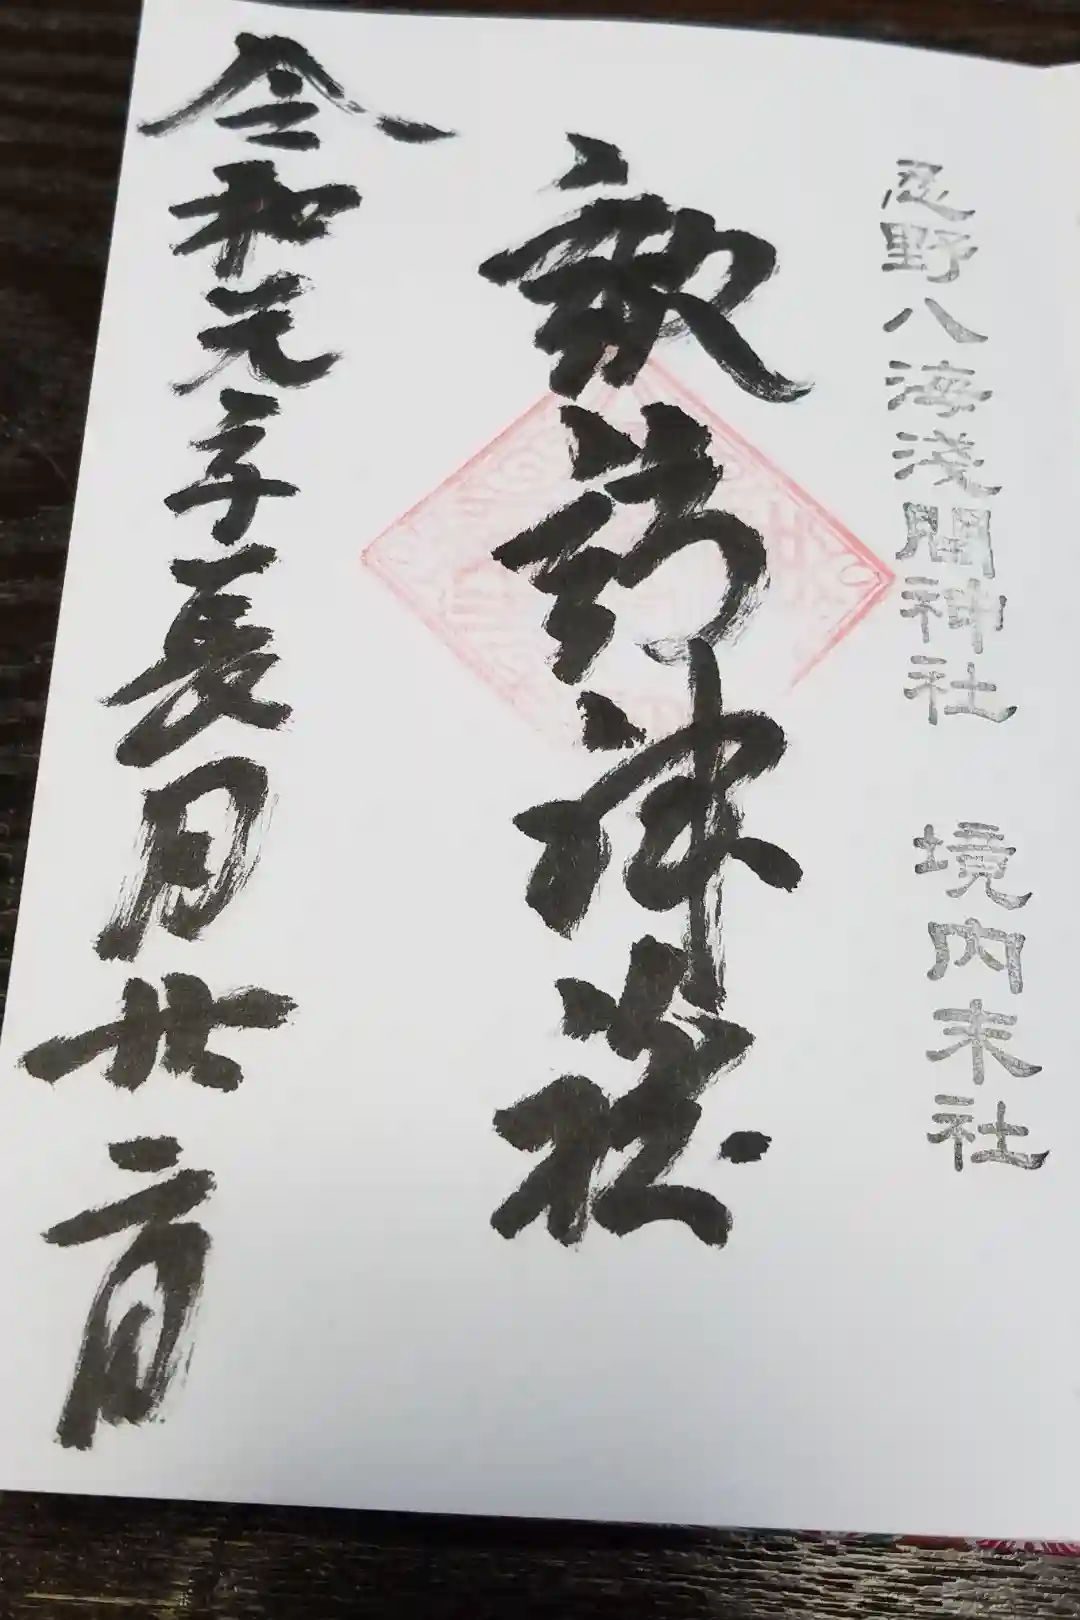 忍野八海淺間神社 境内末社
諏訪神社
令和元年長月廿二日